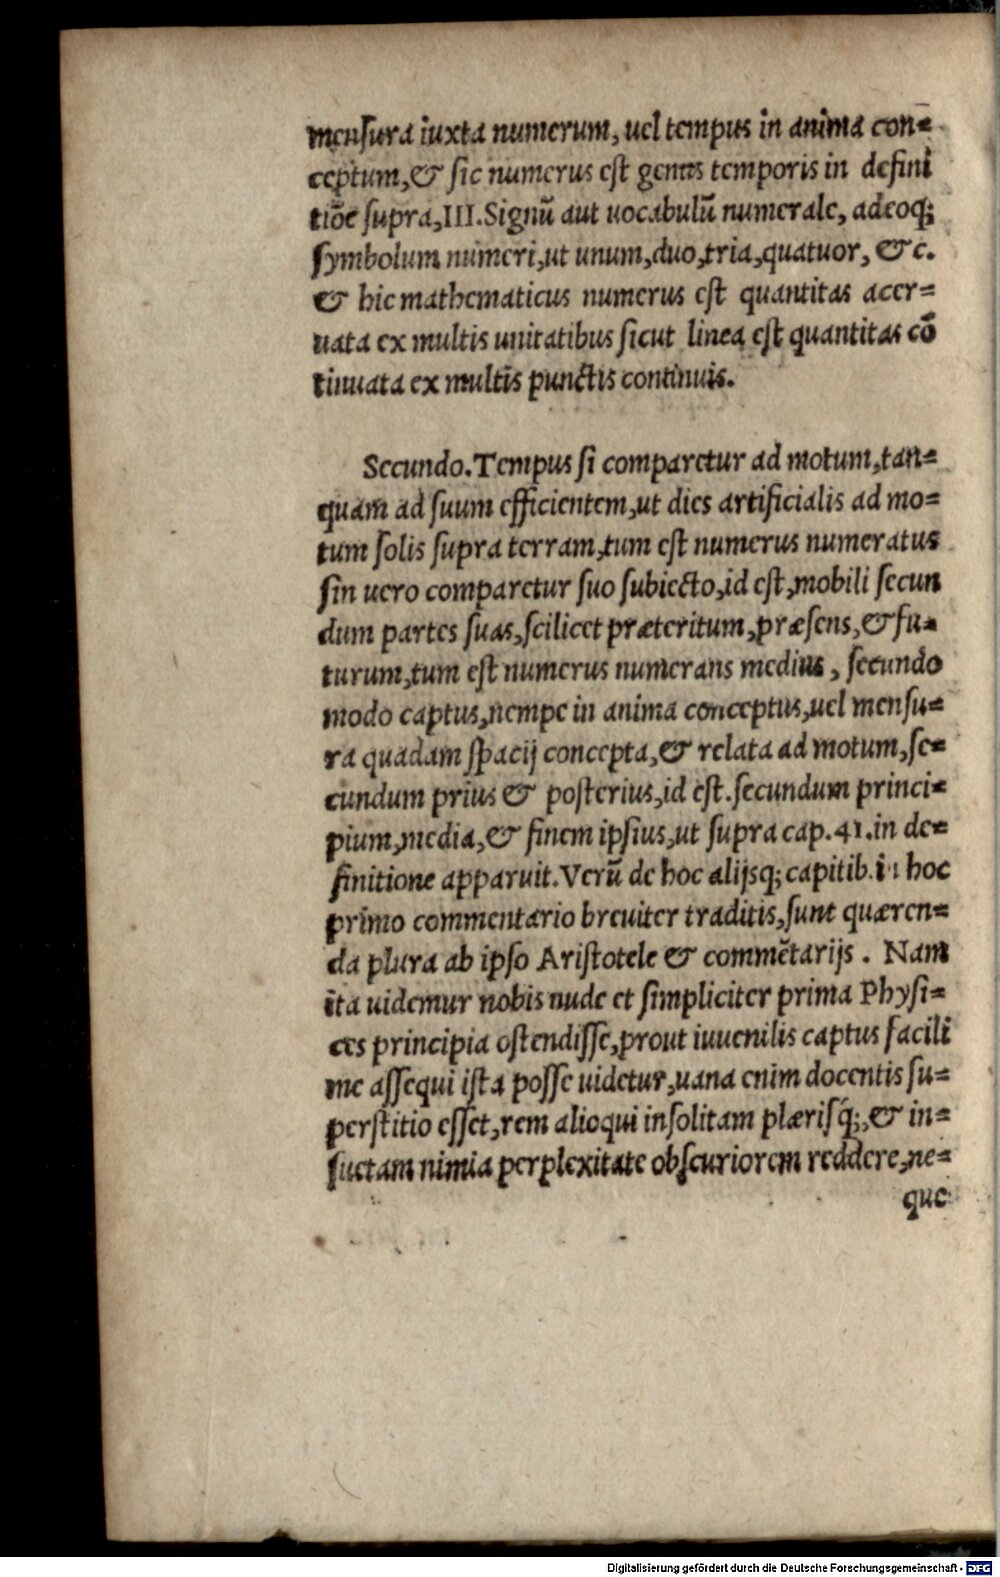 mensura iuxta numerum, uel tempus in anima con=
ceptum, & sic numerus est genus temporis in defini
tiõe supra, III. Signũ aut uocabulũ numerale, adeoq;
symbolum numeri, ut unum, duo, tria, quatuor, &c.
& hic mathematicus numerus est quantitas acer=
uata ex multis unitatibus sicut linea est quantitas cõ
tinuata ex multis punctis continuis.
Secundo. Tempus si comparetur ad motum, tan=
quam ad suum efficientem, ut dies artificialis ad mo=
tum solis supra terram, tum est numerus numeratus
sin uero comparetur suo subiecto, id est, mobili secun
dum partes suas, scilicet præteritum, præsens, & fu=
turum, tum est numerus numerans medius, secundo
modo captus, nempe in anima conceptus, uel mensu=
ra quadam spacij concepta, & relata ad motum, se=
cundum prius & posterius, id est. secundum princi=
pium, media, & finem ipsius, ut supra cap. 41. in de=
finitione apparuit. Verũ de hoc alijsq; capitib. in hoc
primo commentario breuiter traditis, sunt quæren=
da plura ab ipso Aristotele & commẽtarijs. Nam
ita uidemur nobis nude et simpliciter prima Physi=
ces principia ostendisse, prout iuuenilis captus facili
me assequi ista posse uidetur, uana enim docentis su=
perstitio esset, rem alioqui insolitam plærisq́;, & in=
suetam nimia perplexitate obscuriorem reddere, ne=
que
Digitalisierung gefördert durch die Deutsche Forschungsgemeinschaft - DFG